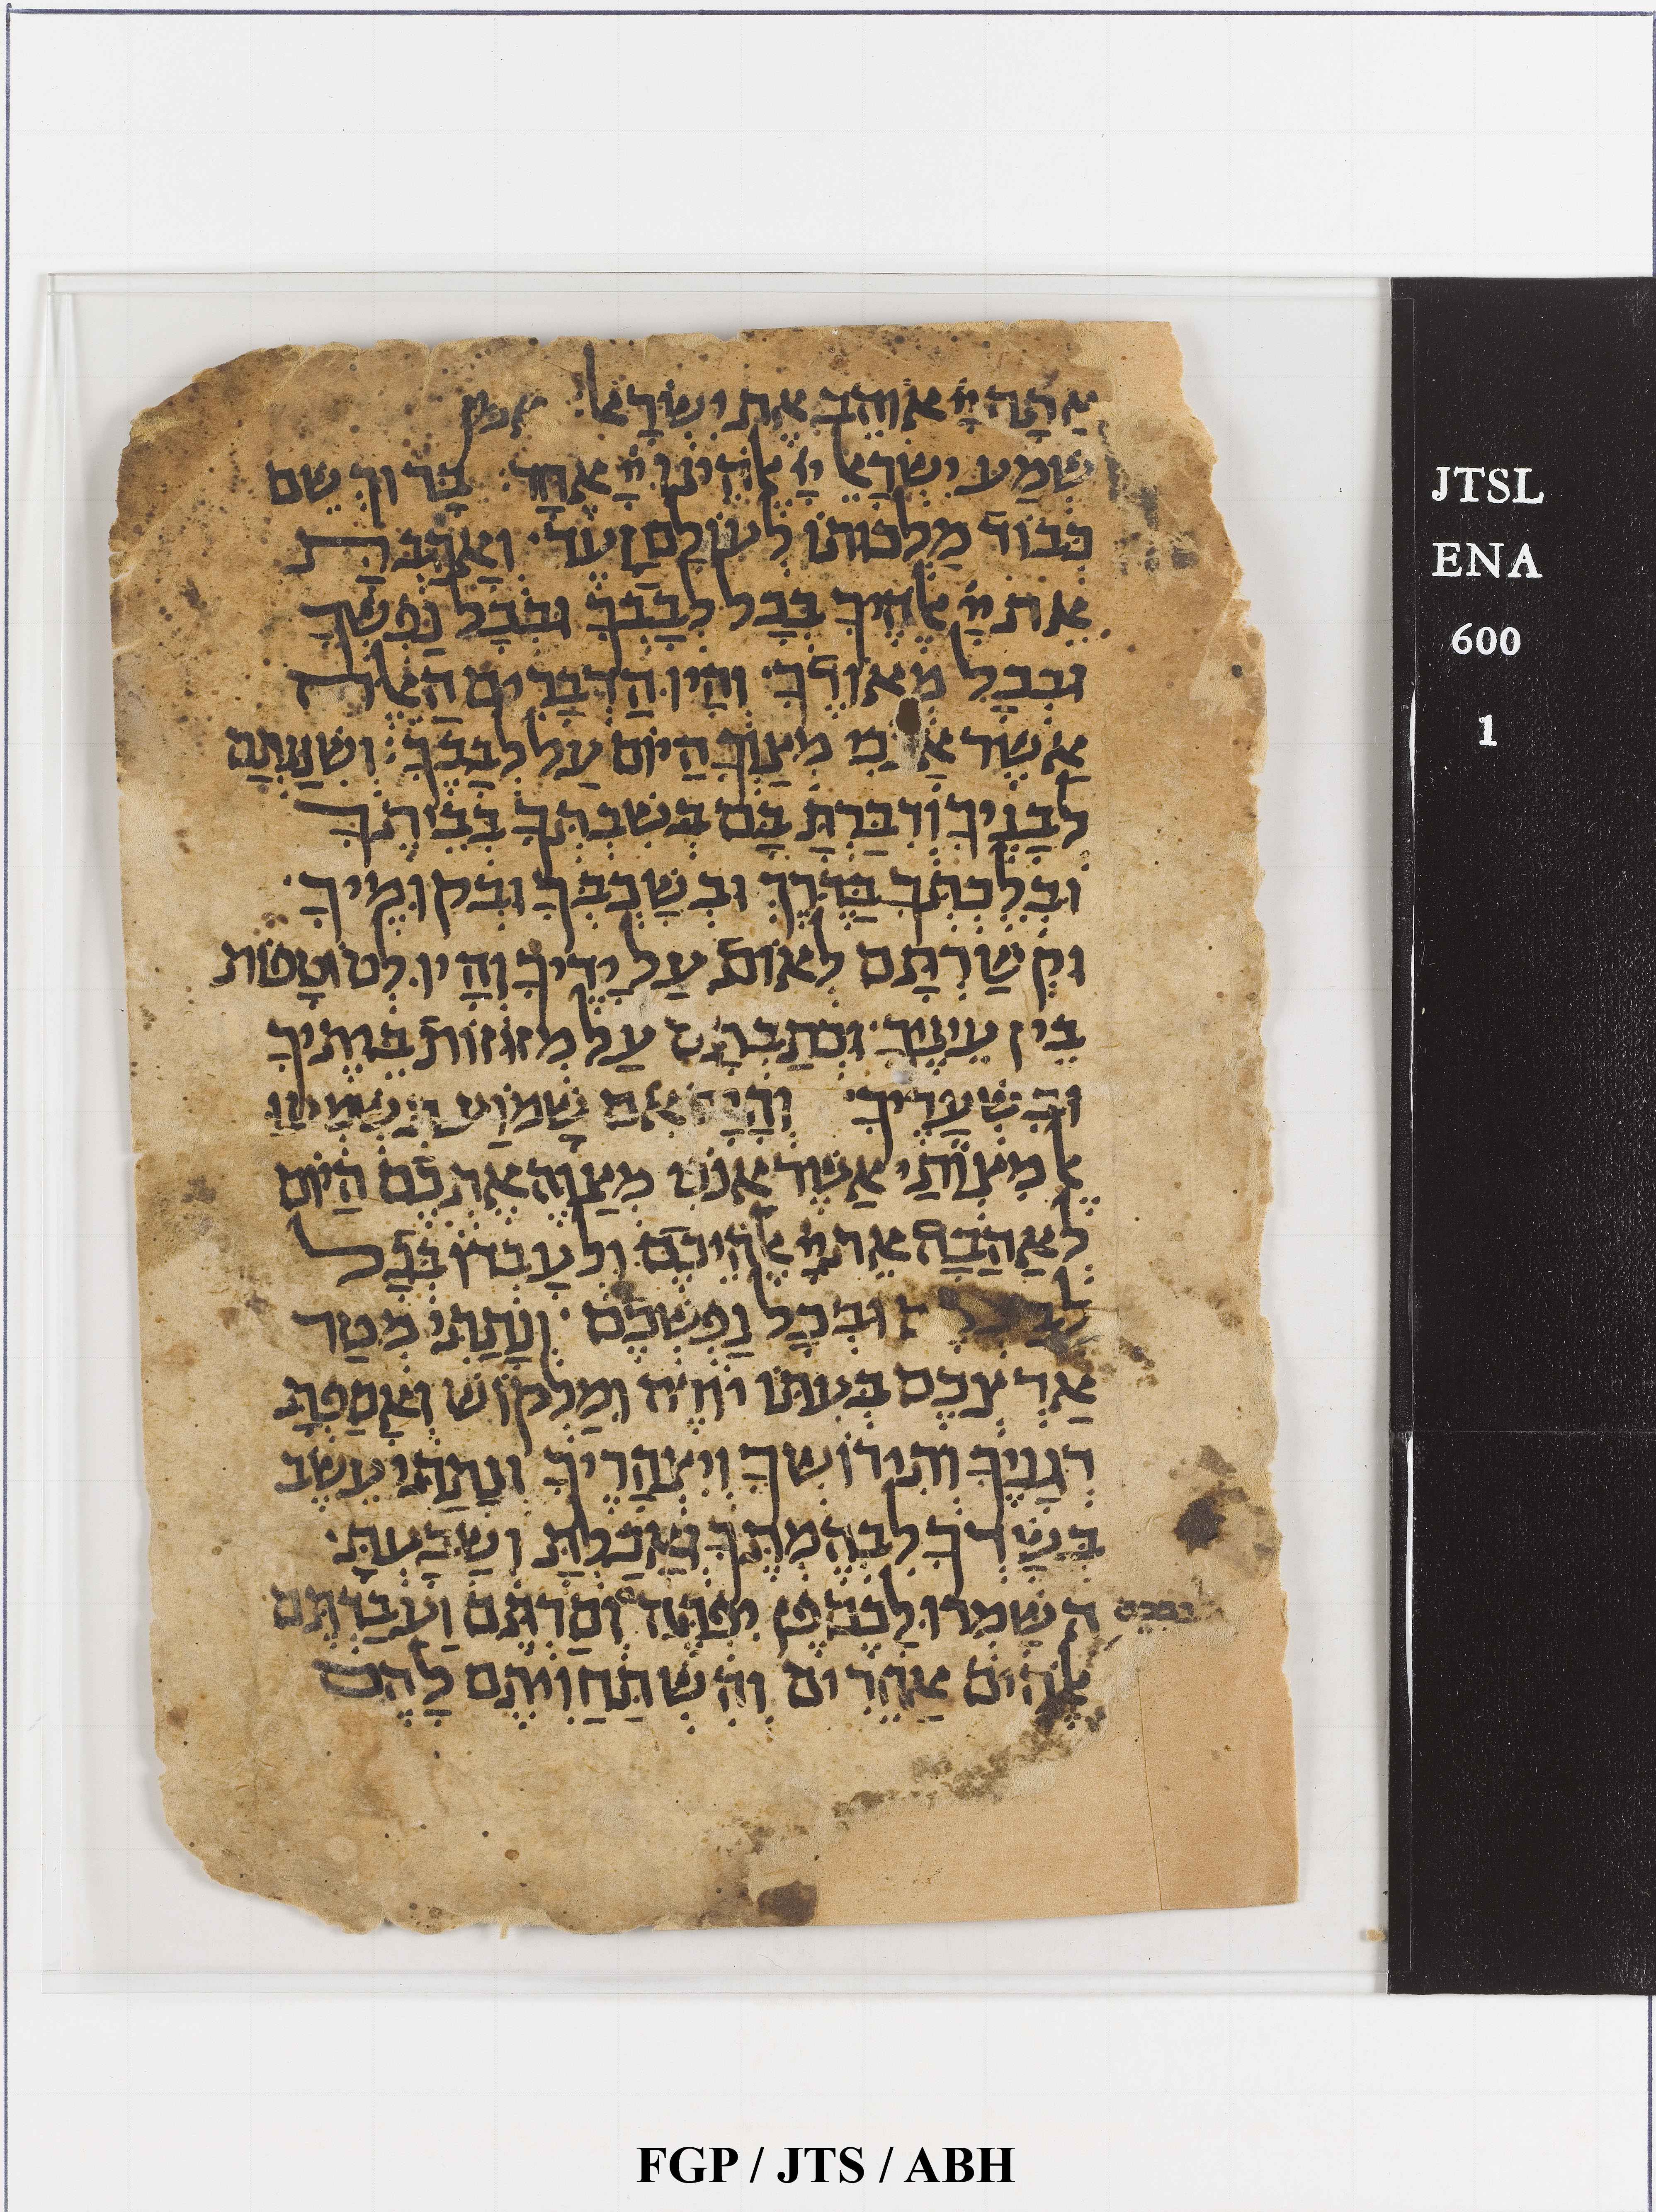 אַתָּה יְיָ אוֹהֵב אֶת יִשְׂרָאֵל אמן
שְׁמַע יִשְׂרָאֵל יְיָ אֱלֹהֵינוּ יְיָ אֶחָד בָּרוּךְ שֵׁם
כְּבוֹד מַלְכוּתוֹ לְעוֹלָם וָעֶד וְאָהַבְתָּ
אֶת יְיָ אֱלֹהֶיךָ בְּכָל לְבָבְךָ וּבְכָל נַפְשְׁךָ
וּבְכָל מְאוֹדֶךָ וְהָיוּ הַדְּבָרִים הָאֵלֶּה
אֲשֶׁר מְצַוְּךָ הַיּוֹם עַל לְבָבֶךָ וְשִׁנַּנְתָּם
לְבָנֶיךָ וְדִבַּרְתָּ בָּם בְּשִׁבְתְּךָ בְּבֵיתֶךָ
וּבְלֶכְתְּךָ בַדֶּרֶךְ וּבְשָׁכְבְּךָ וּבְקוּמֶיךָ
וּקְשַׁרְתָּם לְאוֹת עַל יָדֶיךָ וְהָיוּ לְטוֹטָפוֹת
בֵּין עֵינֶיךָ וּכְתַבְתָּם עַל מְזוּזוֹת בֵּיתֶיךָ
וּבִשְׁעָרֶיךָ וְהָיָה אִם שָׁמוֹעַ תִּשְׁמְעוּ
אֶל מִצְוֹתַי אֲשֶׁר אָנֹכִי מְצַוֶּה אֶתְכֶם הַיּוֹם
לְאַהֲבָה אֶת יְיָ אֱלֹהֵיכֶם וּלְעָבְדוֹ בְּכָל
וּבְכָל נַפְשְׁכֶם וְנָתַתִּי מְטַר
אַרְצְכֶם בְּעִתּוֹ יוֹרֶה וּמַלְקוֹשׁ וְאָסַפְתָּ
דְגָנֶיךָ וְתִירוֹשְׁךָ וְיִצְהָרֶיךָ וְנָתַתִּי עֵשֶׂב
בְּשָׂדְךָ לִבְהֶמְתֶּךָ וְאָכַלְתָּ וְשָׂבָעְתָּ
הִשָּׁמְרוּ לָכֶם פֶּן יִפְתֶּה וְסַרְתֶּם וַעֲבַדְתֶּם
אֱלֹהִים אֲחֵרִים וְהִשְׁתַּחֲוִיתֶם לָהֶם
JTSL
ENA
600
1
FGP / JTS / ABH